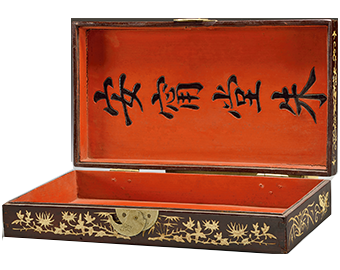 安甯堂朱